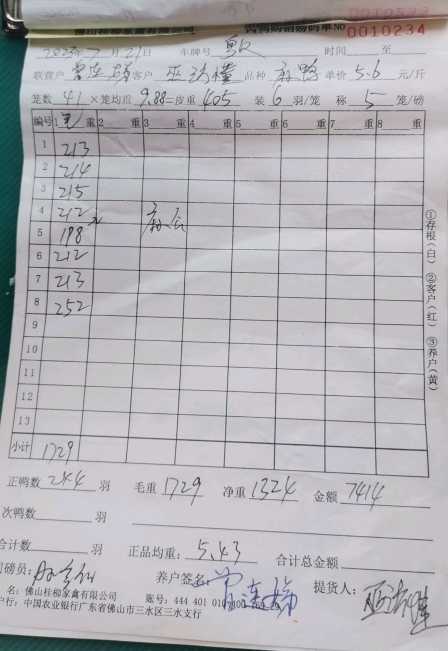 佛山桂柳家禽有限公司
0010234
2023年7月21日 车牌号 时间 至
联营户 客户 品种 麻鸭 单价 5.6 元/斤
笼数 41 ×笼均重 9.88 =皮重 405 装 6 羽/笼 称 5 笼/磅
编号 1 毛 重 2 重 3 重 4 重 5 重 6 重 7 重 8 重
1 213
2 214
3 215
4 212
5 198
6 212
7 213
8 252
9
10
11
12
13
小计 1729
①存根(白) ②客户(红) ③养户(黄)
正鸭数 244 羽 毛重 1729 净重 1324 金额 7414
次鸭数 羽
合计数 羽 正品均重: 5.43 合计总金额
司磅员: 养户签名: 提货人:
名: 佛山桂柳家禽有限公司 账号: 444 401 010
户行: 中国农业银行广东省佛山市三水区三水支行